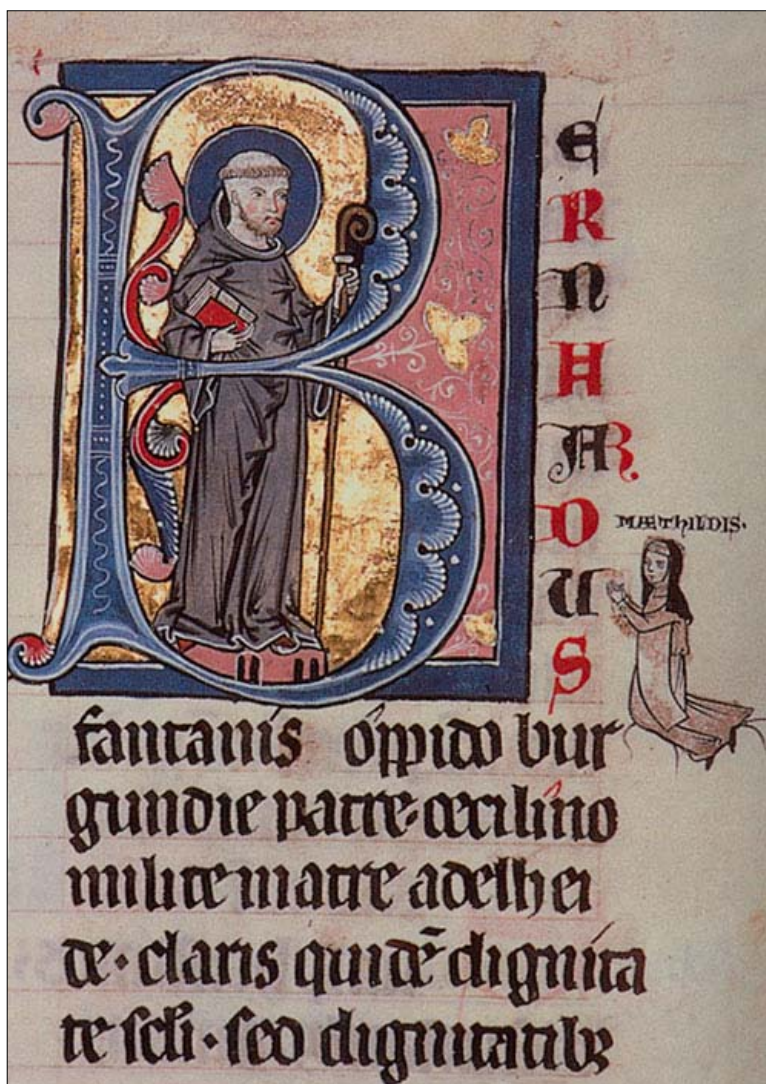 BERNHARDUS
MÆTHILDIS·
fantanis oppido bur
gundie patre·cecilino
milite matre adelhei
de·claris quidē dignita
te scli·sed dignitatibꝫ